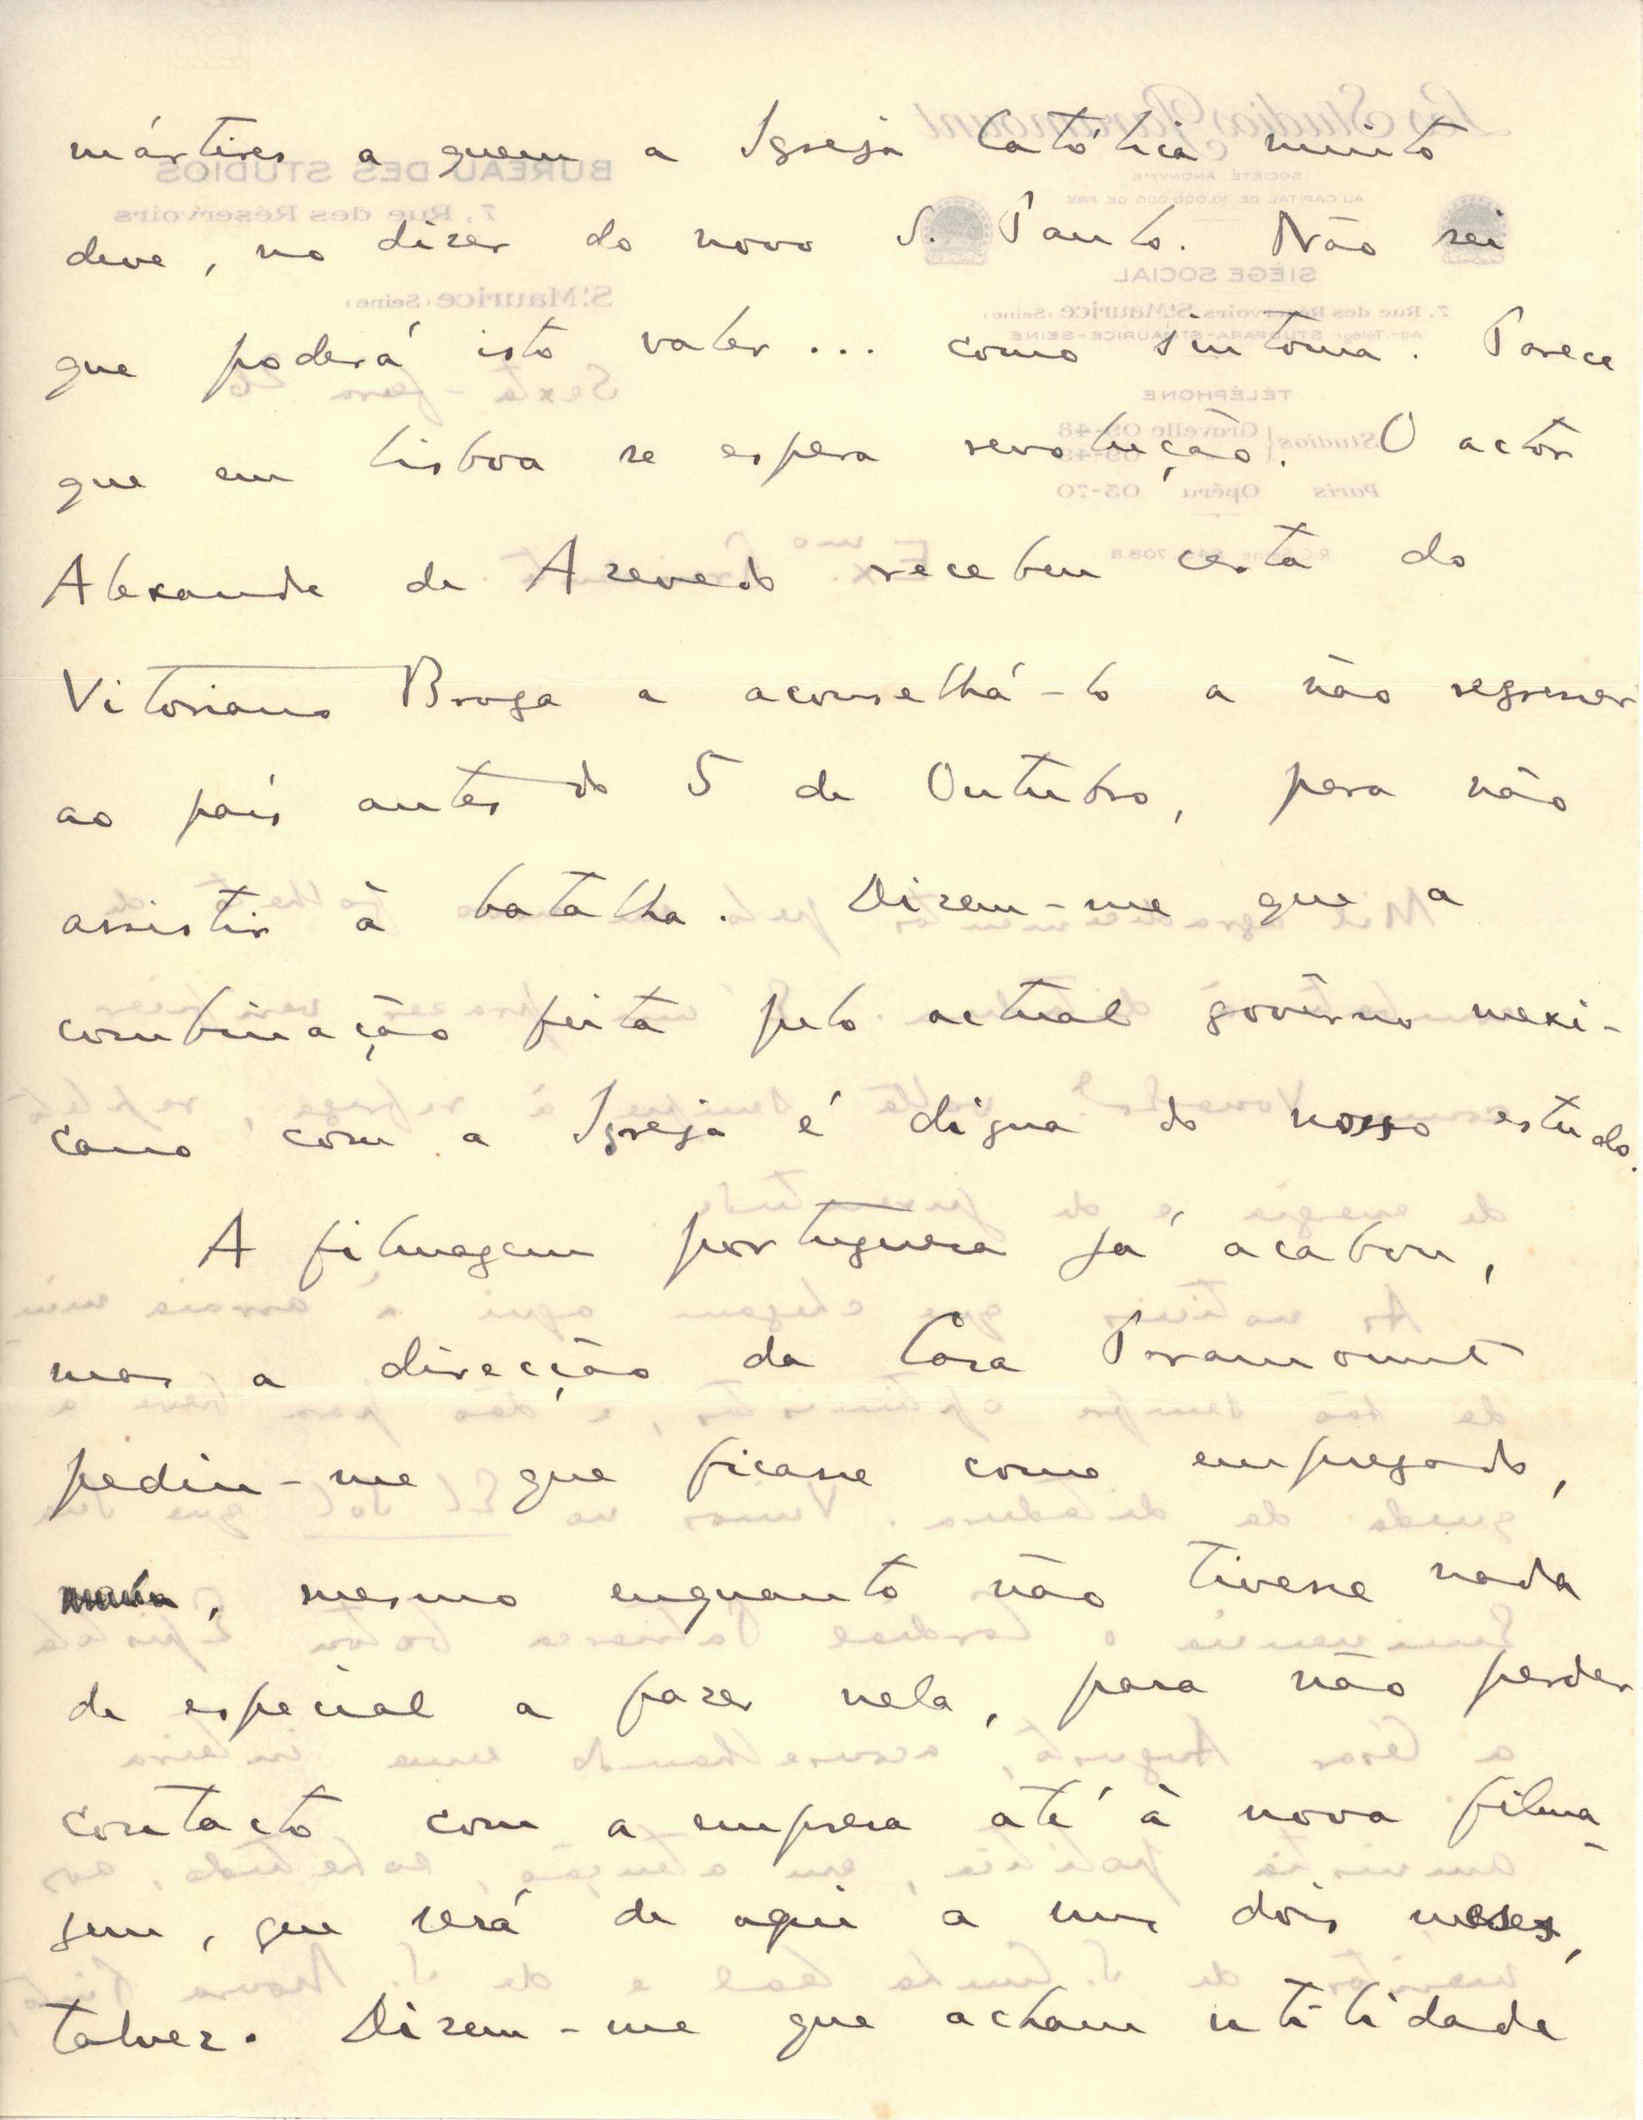 mártires a quem a Igreja Católica muito
deve, no dizer do novo S. Paulo. Não sei
que poderá isto valer... como sintoma. Parece
que em Lisboa se espera revolução. O actor
Alexandre de Azevedo recebeu carta do
Vitoriano Braga a aconselhá-lo a não regressar
ao país antes do 5 de Outubro, para não
assistir à batalha. Dizem-me que a
combinação feita pelo actual govêrno mexi-
cano com a Igreja é digna do nosso estudo.
A filmagem portuguesa já acabou,
mas a direcção da Casa Paramount
pediu-me que ficasse como empregado,
, mesmo enquanto não tivesse nada
de especial a fazer nela, para não perder
contacto com a empresa até à nova filma-
gem, que será de aqui a uns dois meses,
talvez. Dizem-me que acham utilidade